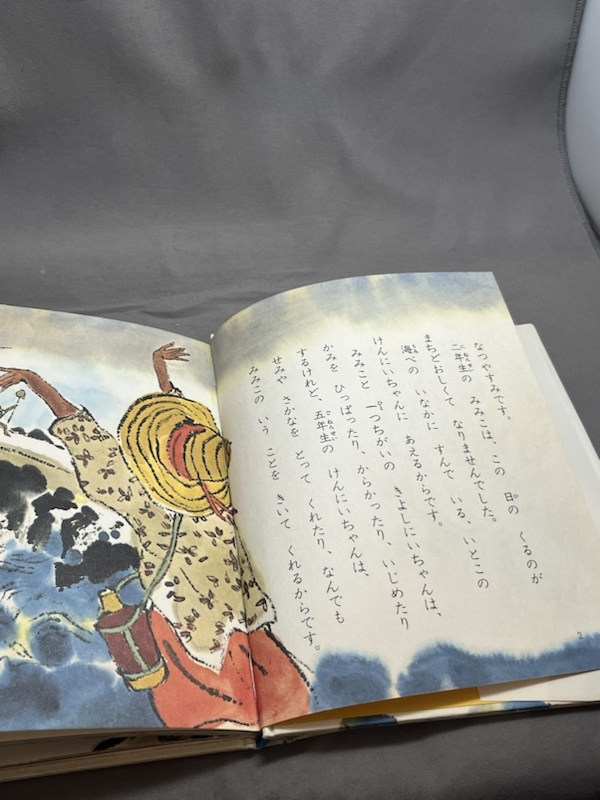 なつやすみです。
二年生の みみこは、この 日の くるのが
まちどおしくて なりませんでした。
海べの いなかに すんで いる、いとこの
けんにいちゃんに あえるからです。
みみこと 一つちがいの きよしにいちゃんは、
かみを ひっぱったり、からかったり、いじめたり
するけれど、五年生の けんにいちゃんは、
せみや さかなを とって くれたり、なんでも
みみこの いう ことを きいて くれるからです。
2